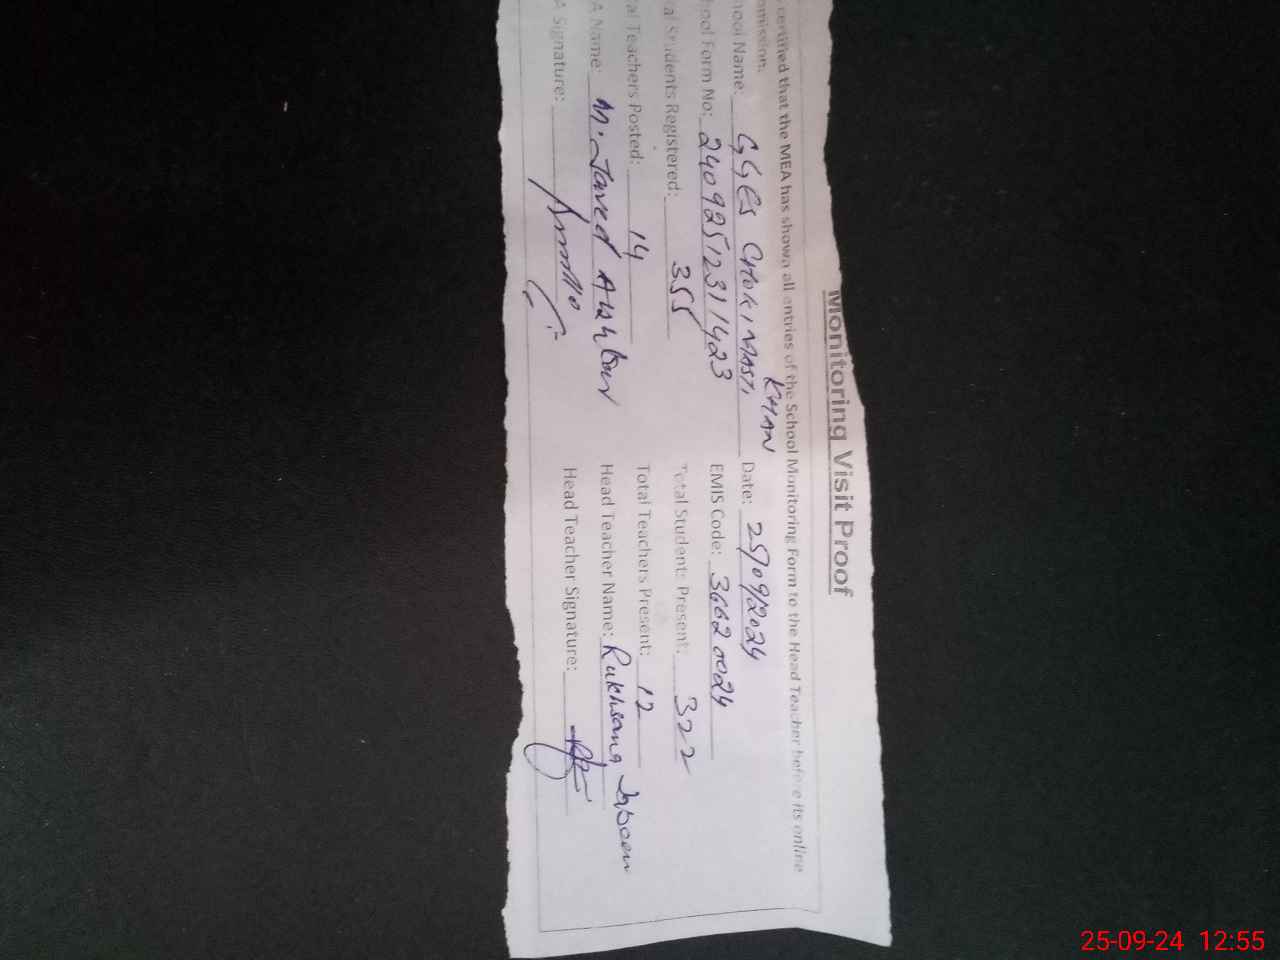 Monitoring Visit Proof
certified that the MEA has shown all entries of the School Monitoring Form to the Head Teacher before its online
omission.
hool Name: GGES CHOKI MASTI KHAN Date: 25/09/2024
hool Form No: 24092512311423 EMIS Code: 36620024
al Students Registered: 355 Total Students Present: 322
al Teachers Posted: 14 Total Teachers Present: 12
A Name: M. Javed Head Teacher Name: Rukhsana
A Signature: Head Teacher Signature:
25-09-24 12:55